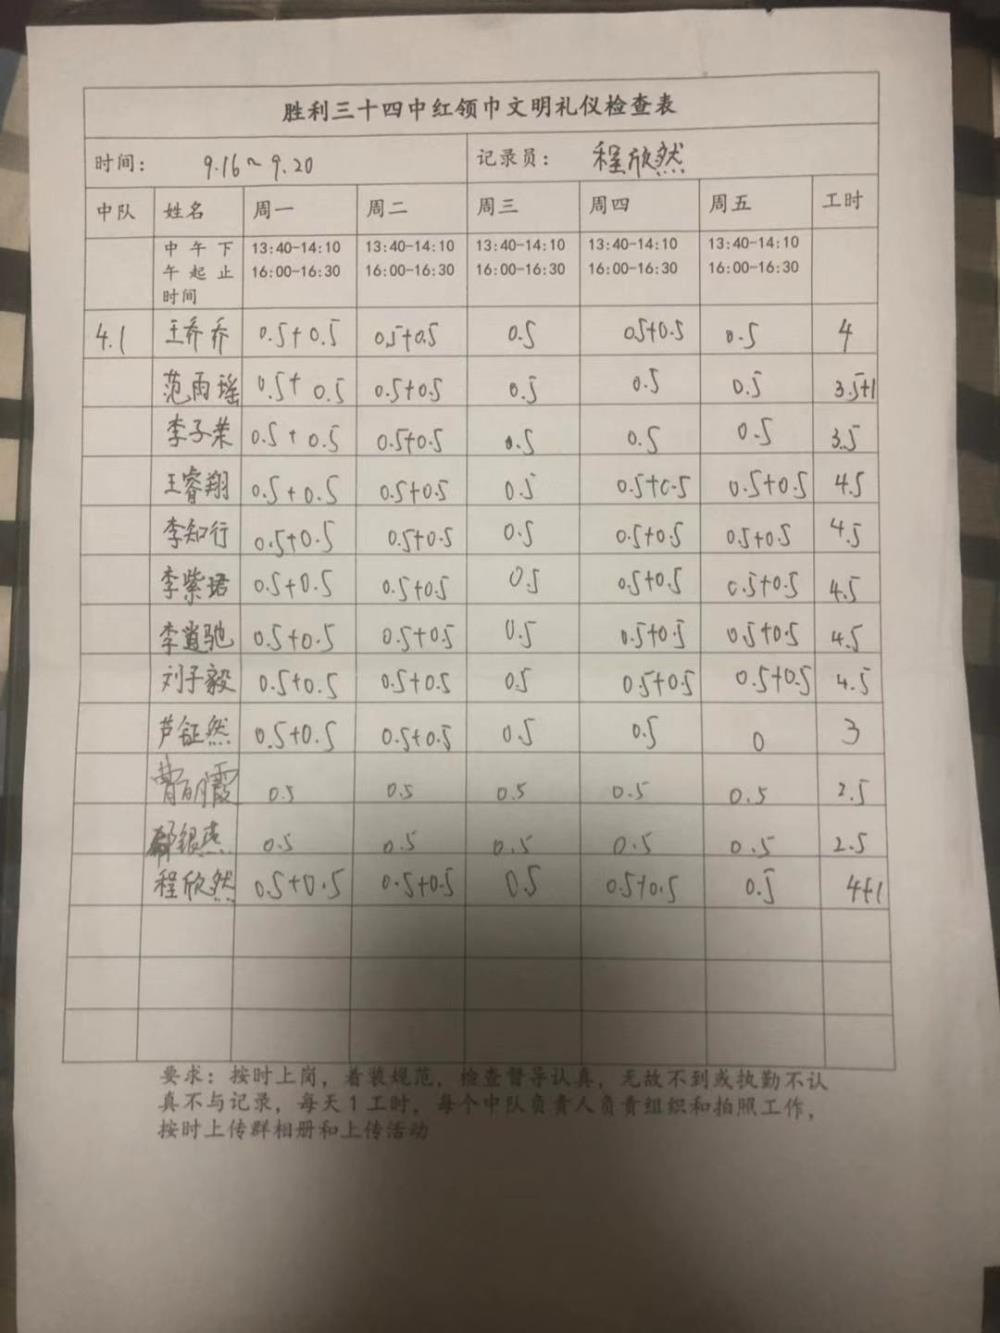 胜利三十四中红领巾文明礼仪检查表
时间： 9.16～9.20 记录员： 程欣然
中队 姓名 周一 周二 周三 周四 周五 工时
中午下 13:40-14:10 13:40-14:10 13:40-14:10 13:40-14:10 13:40-14:10
午起止 16:00-16:30 16:00-16:30 16:00-16:30 16:00-16:30 16:00-16:30
时间
4.1 王乔乔 0.5+0.5 0.5+0.5 0.5 0.5+0.5 0.5 4
范雨瑶 0.5+0.5 0.5+0.5 0.5 0.5 0.5 3.5+1
李子荣 0.5+0.5 0.5+0.5 0.5 0.5 0.5 3.5
王睿翔 0.5+0.5 0.5+0.5 0.5 0.5+0.5 0.5+0.5 4.5
李知行 0.5+0.5 0.5+0.5 0.5 0.5+0.5 0.5+0.5 4.5
李紫珺 0.5+0.5 0.5+0.5 0.5 0.5+0.5 0.5+0.5 4.5
李逍驰 0.5+0.5 0.5+0.5 0.5 0.5+0.5 0.5+0.5 4.5
刘子毅 0.5+0.5 0.5+0.5 0.5 0.5+0.5 0.5+0.5 4.5
芦钲然 0.5+0.5 0.5+0.5 0.5 0.5 0 3
曹明霞 0.5 0.5 0.5 0.5 0.5 2.5
0.5 0.5 0.5 0.5 0.5 2.5
程欣然 0.5+0.5 0.5+0.5 0.5 0.5+0.5 0.5 4+1
要求：按时上岗，着装规范，检查督导认真，无故不到或执勤不认
真不与记录，每天1工时，每个中队负责人负责组织和拍照工作，
按时上传群相册和上传活动